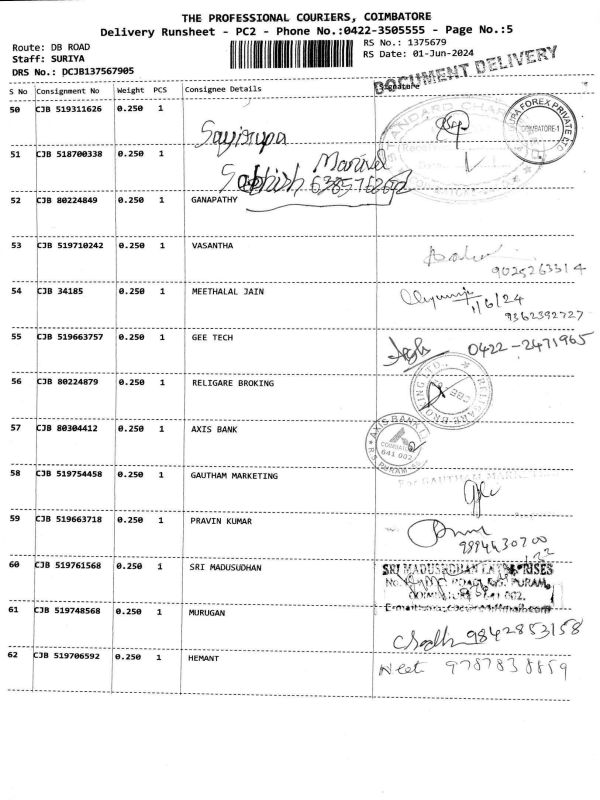 THE PROFESSIONAL COURIERS, COIMBATORE
Delivery Runsheet - PC2 - Phone No.:0422-3505555 - Page No.:5
Route: DB ROAD
Staff: SURIYA
DRS No.: DCJB137567905
RS No.: 1375679
RS Date: 01-Jun-2024
DOCUMENT DELIVERY
S No Consignment No Weight PCS Consignee Details Signature
50 CJB 519311626 0.250 1
STANDARD
FOREX PRIVATE LTD
COIMBATORE-1
51 CJB 518700338 0.250 1
52 CJB 80224849 0.250 1 GANAPATHY
53 CJB 519710242 0.250 1 VASANTHA
9025263314
54 CJB 34185 0.250 1 MEETHALAL JAIN
1/6/24
9362392727
55 CJB 519663757 0.250 1 GEE TECH
0422-2471965
56 CJB 80224879 0.250 1 RELIGARE BROKING
RELIGARE BROKING LTD.
CBE
57 CJB 80304412 0.250 1 AXIS BANK
AXIS BANK
641 002
R S PURAM
58 CJB 519754458 0.250 1 GAUTHAM MARKETING
For GAUTHAM
59 CJB 519663718 0.250 1 PRAVIN KUMAR
60 CJB 519761568 0.250 1 SRI MADUSUDHAN
SRI MADUSUDHAN ENTERPRISES
PURAM,
61 CJB 519748568 0.250 1 MURUGAN
9842853158
62 CJB 519706592 0.250 1 HEMANT
Neet 9787838859